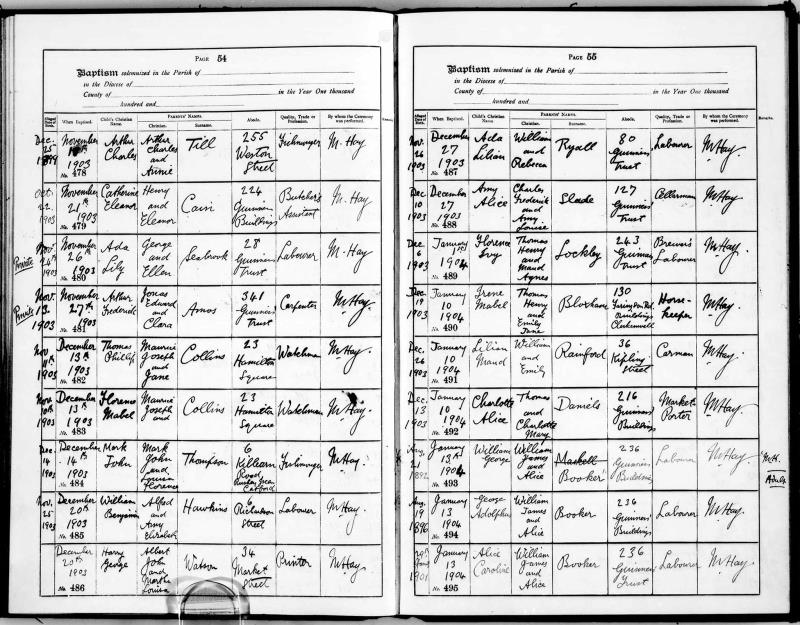 PAGE 54
Baptism solemnized in the Parish of
in the Diocese of
County of in the Year One thousand
hundred and
Alleged Date of Birth. When Baptized. Child's Christian Name. PARENTS' NAMES. Abode. Quality, Trade or Profession. By whom the Ceremony was performed.
Christian. Surname.
Dec. 25 1899 November 1903 No. 478 Arthur Charles Arthur Charles and Annie Till 255 Weston Street M. Hay
Oct. 22 1903 November 21st 1903 No. 479 Catherine Eleanor Henry and Eleanor Cain 224 Guinness Buildings Butcher's Assistant M. Hay
Private Nov. 24th 1903 November 26th 1903 No. 480 Ada Lily George and Ellen Seabrook 28 Guinness Trust Labourer M. Hay
Private Nov. 13 1903 November 27th 1903 No. 481 Arthur Frederick Jonas Edward and Clara Amos 341 Guinness Trust Carpenter M. Hay
Nov. 11th 1903 December 13th 1903 No. 482 Thomas Phillip Maurice Joseph and Jane Collins 23 Hamilton Square Watchman M. Hay
Nov. 10th 1903 December 13th 1903 No. 483 Florence Mabel Maurice Joseph and Collins 23 Hamilton Square Watchman M. Hay
Dec. 14 1903 December 14th 1903 No. 484 Mark John Mark John and Louisa Florence Thompson 6 Road, Catford M. Hay
Nov. 25 1903 December 20th 1903 No. 485 William Benjamin Alfred and Amy Elizabeth Hawkins 6 Richardson Street Labourer M. Hay
December 20th 1903 No. 486 Harry George Albert John and Martha Louisa Watson 34 Market Street Printer M. Hay
PAGE 55
Baptism solemnized in the Parish of
in the Diocese of
County of in the Year One thousand
hundred and
Alleged Date of Birth. When Baptized. Child's Christian Name. PARENTS' NAMES. Abode. Quality, Trade or Profession. By whom the Ceremony was performed. Remarks.
Christian. Surname.
Nov. 26 1903 December 27 1903 No. 487 Ada Lilian William and Rebecca Ryall 80 Guinness Trust Labourer M. Hay
Dec. 10 1903 December 27 1903 No. 488 Amy Alice Charles Frederick and Amy Louise Slade 127 Guinness Trust Cellarman M. Hay
Dec. 6 1903 January 1 1904 No. 489 Florence Ivy Thomas Henry and Maud Agnes Lockley 243 Guinness Trust Brewer's Labourer M. Hay
Dec. 19 1903 January 10 1904 No. 490 Irene Mabel Thomas Henry and Emily Jane Bloxham 130 Farringdon Rd. Buildings Clerkenwell Horse-keeper M. Hay
Dec. 26 1903 January 10 1904 No. 491 Lilian Maud William and Emily Rainford 36 Kipling Street Carman M. Hay
Dec. 13 1903 January 10 1904 No. 492 Charlotte Alice Thomas and Charlotte Mary Daniels 216 Guinness Buildings Market Porter M. Hay
Aug. 21 1892 January 13th 1904 No. 493 William George William James and Alice Maskell Booker 236 Guinness Buildings Labourer M. Hay M.H. Adult
Aug. 19 1896 January 13 1904 No. 494 George Adolphus William James and Alice Booker 236 Guinness Buildings Labourer M. Hay
29th 1901 January 13 1904 No. 495 Alice Caroline William James and Alice Booker 236 Guinness Trust Labourer M. Hay